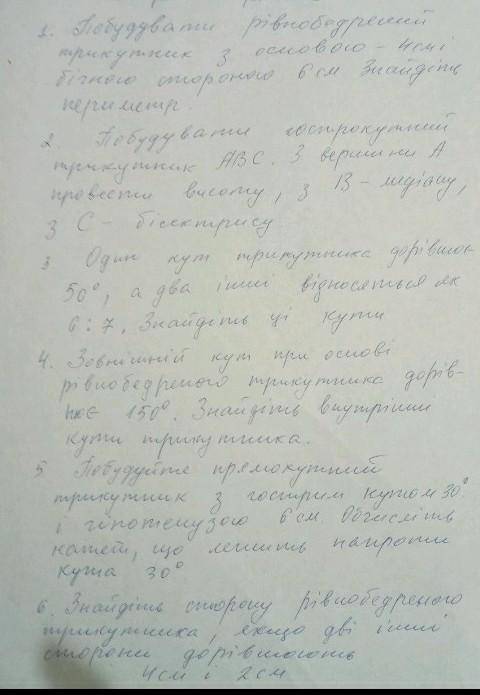 1. Побудувати рівнобедрений
трикутник з основою - 4см і
бічною стороною 6см Знайдіть
периметр.
2. Побудувати гострокутний
трикутник АВС. З вершини А
провести висоту, з В - медіану,
з С - бісектрису.
3 Один кут трикутника дорівнює
50°, а два інші відносяться як
6:7. Знайдіть ці кути
4. Зовнішній кут при основі
рівнобедреного трикутника дорів-
нює 150°. Знайдіть внутрішні
кути трикутника.
5 Побудуйте прямокутний
трикутник з гострим кутом 30°
і гіпотенузою 6см Обчисліть
катет, що лежить напроти
кута 30°
6. Знайдіть сторону рівнобедреного
трикутника, якщо дві інші
сторони дорівнюють
4см і 2см